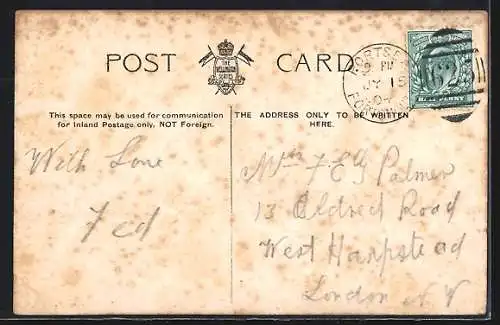 POST CARD
THE
WELLINGTON
SERIES
This space may be used for communication
for Inland Postage only, NOT Foreign.
THE ADDRESS ONLY TO BE WRITTEN
HERE.
JY 15
04
HALF PENNY
With Love
Fed
Mrs F E G Palmer
13 Aldred Road
West Hampstead
London N.W